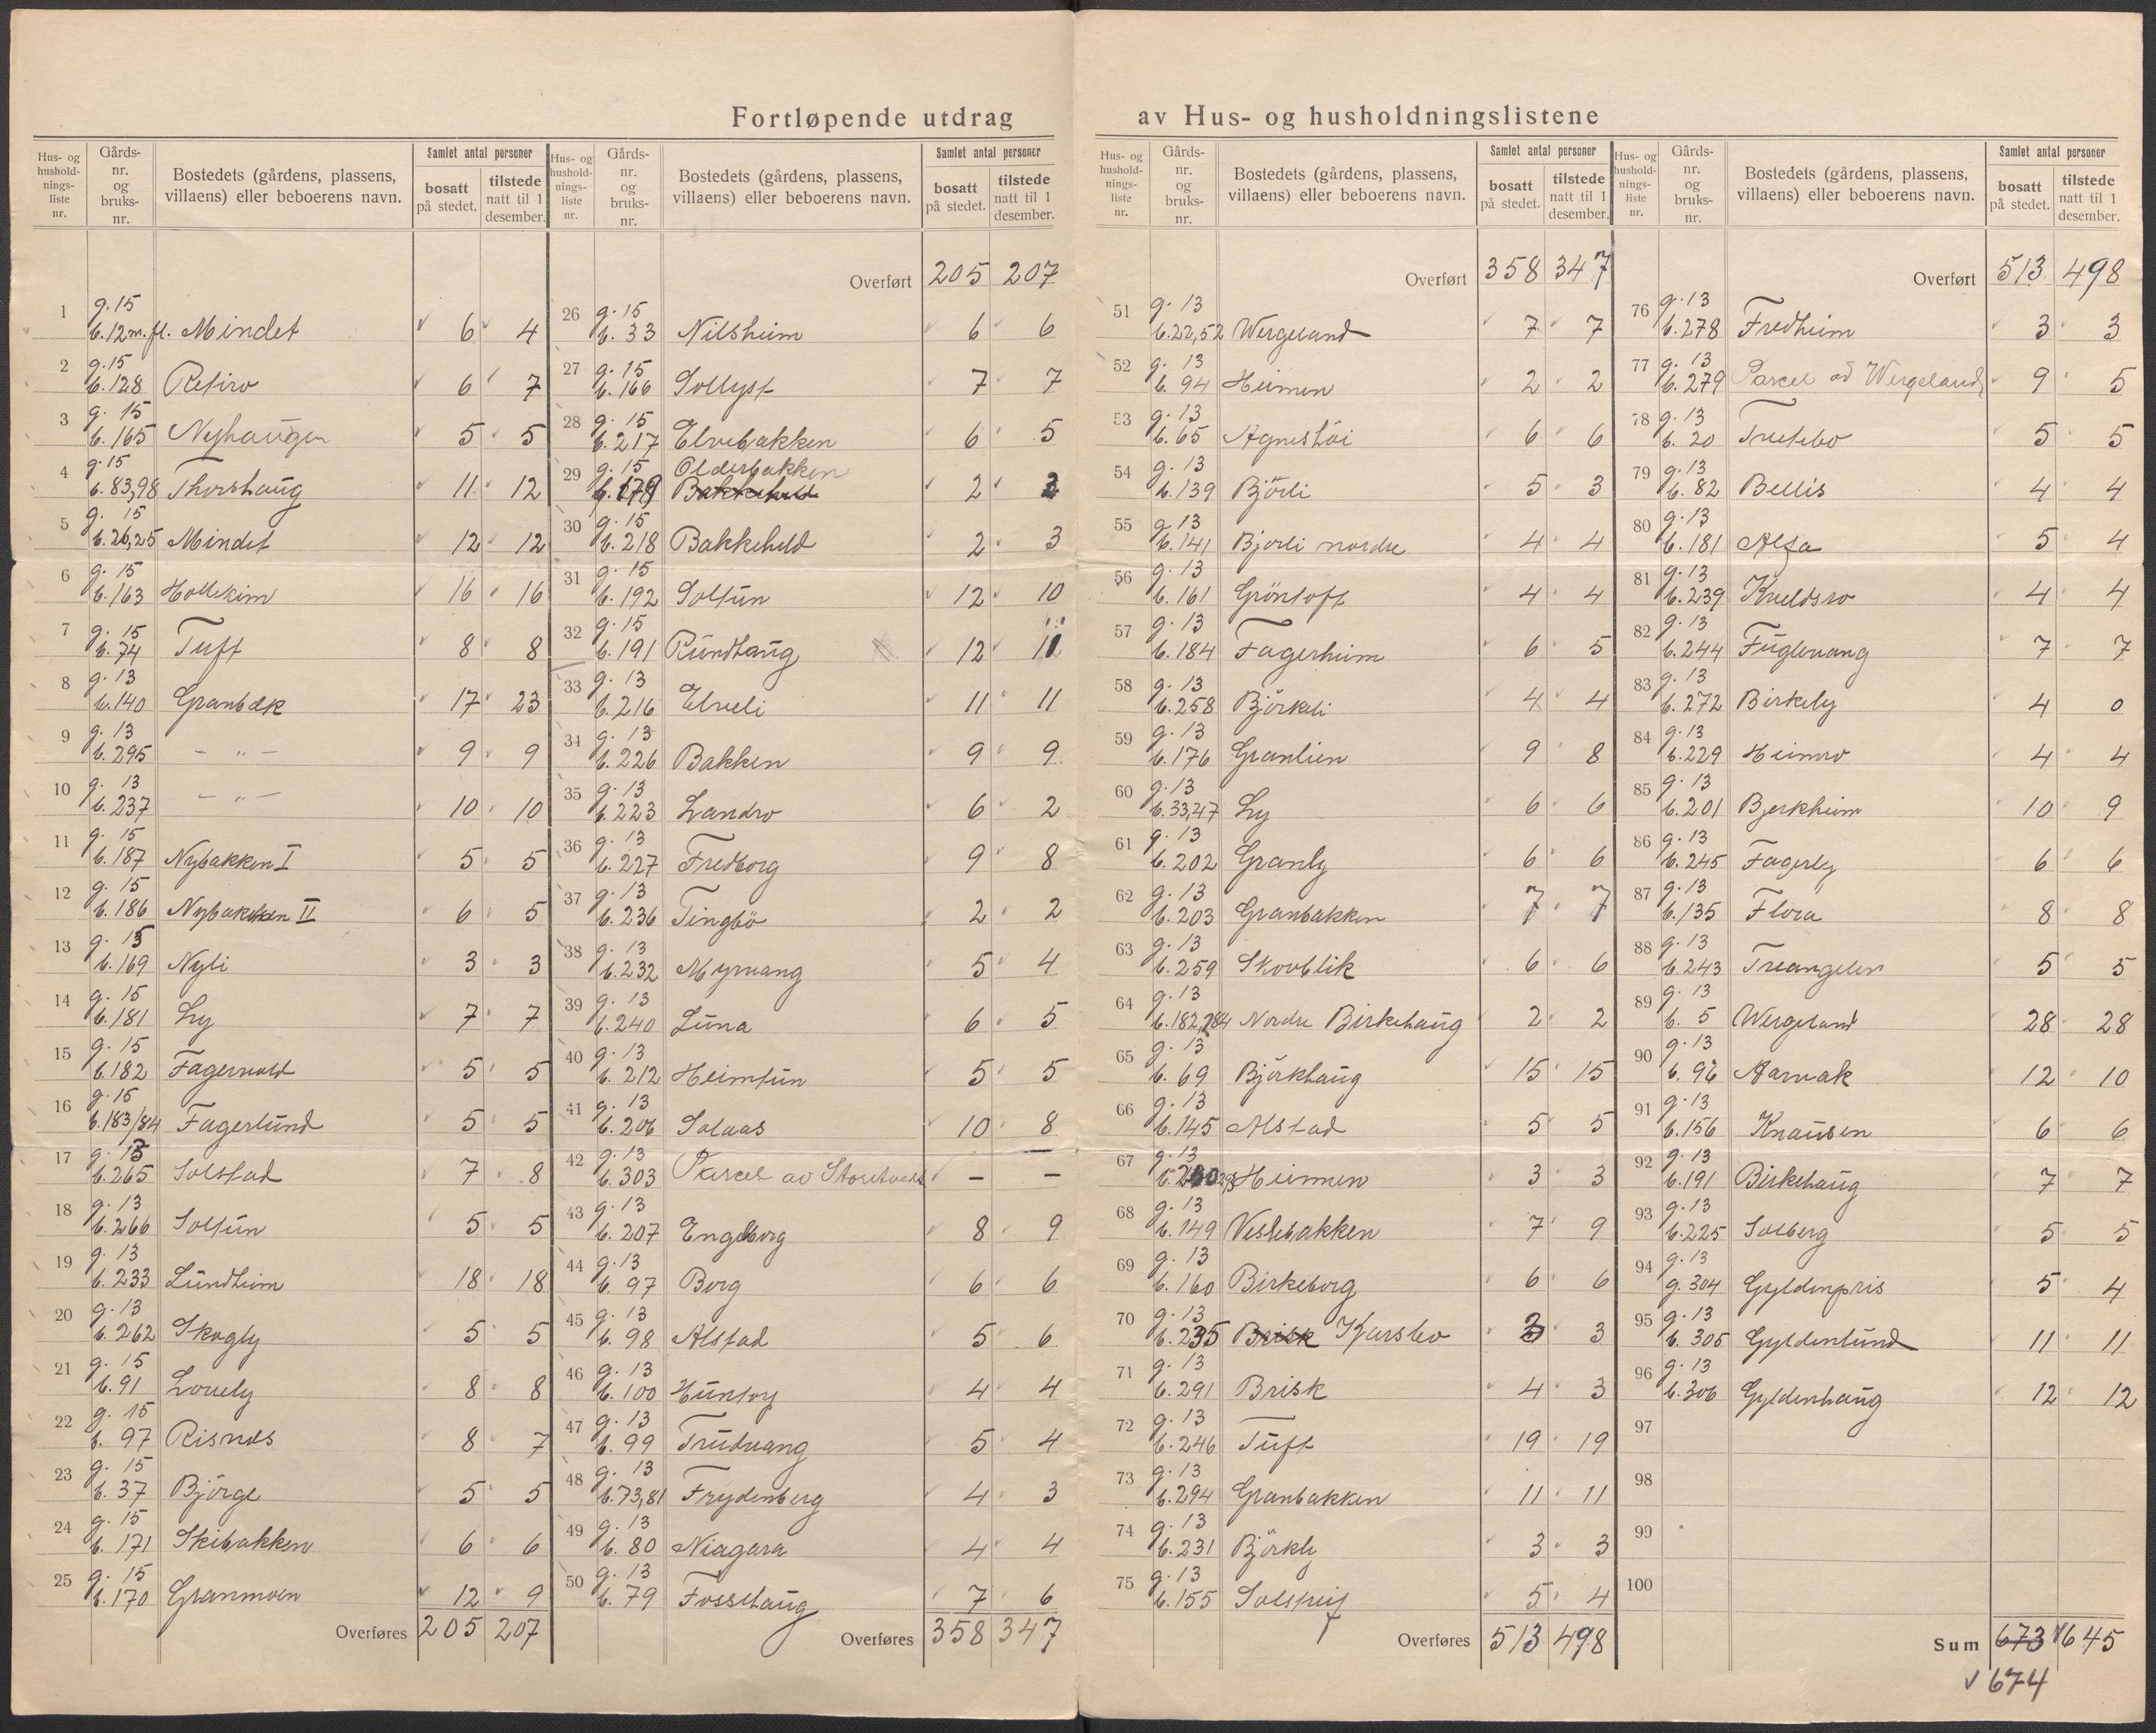 Fortløpende utdrag av Hus- og husholdningslistene
Hus- og husholdningsliste nr. | Gårds-nr. og bruks-nr. | Bostedets (gårdens, plassens, villaens) eller beboerens navn. | Samlet antal personer bosatt på stedet. | tilstede natt til 1 desember.
1 g. 15 b. 12 m. fl. Mindet 6 4
2 g. 15 b. 128 Retiro 6 7
3 g. 15 b. 165 Nyhaugen 5 5
4 g. 15 b. 83,98 Thorshaug 11 12
5 g. 15 b. 26,25 Mindet 12 12
6 g. 15 b. 163 Holtekim 16 16
7 g. 15 b. 74 Tuft 8 8
8 g. 13 b. 140 Granbæk 17 23
9 g. 13 b. 295 — „ — 9 9
10 g. 13 b. 237 — „ — 10 10
11 g. 15 b. 187 Nybakken I 5 5
12 g. 15 b. 186 Nybakken II 6 5
13 g. 15 b. 169 Nyli 3 3
14 g. 15 b. 181 Ly 7 7
15 g. 15 b. 182 Fagervold 5 5
16 g. 15 b. 183/84 Fagerlund 5 5
17 g. 13 b. 265 Solstad 7 8
18 g. 13 b. 266 Soltun 5 5
19 g. 13 b. 233 Lundheim 18 18
20 g. 13 b. 262 Skogly 5 5
21 g. 15 b. 91 Lovely 8 8
22 g. 15 b. 97 Risnes 8 7
23 g. 15 b. 37 Björge 5 5
24 g. 15 b. 171 Skibakken 6 6
25 g. 15 b. 170 Granmoen 12 9
Overføres 205 207
Hus- og husholdningsliste nr. | Gårds-nr. og bruks-nr. | Bostedets (gårdens, plassens, villaens) eller beboerens navn. | Samlet antal personer bosatt på stedet. | tilstede natt til 1 desember.
Overført 205 207
26 g. 15 b. 33 Nilsheim 6 6
27 g. 15 b. 166 Sollyst 7 7
28 g. 15 b. 217 Elvebakken 6 5
29 g. 15 b. 179 Olderbakken Bakkeheld 2 2
30 g. 15 b. 218 Bakkeheld 2 3
31 g. 15 b. 192 Soltun 12 10
32 g. 15 b. 191 Rundhaug 12 11
33 g. 13 b. 216 Elveli 11 11
34 g. 13 b. 226 Bakken 9 9
35 g. 13 b. 223 Landro 6 2
36 g. 13 b. 227 Fredborg 9 8
37 g. 13 b. 236 Tingbö 2 2
38 g. 13 b. 232 Myrvang 5 4
39 g. 13 b. 240 Luna 6 5
40 g. 13 b. 212 Heimtun 5 5
41 g. 13 b. 206 Solaas 10 8
42 g. 13 b. 303 Parcel av Storetvedt — —
43 g. 13 b. 207 Engeborg 8 9
44 g. 13 b. 97 Borg 6 6
45 g. 13 b. 98 Alstad 5 6
46 g. 13 b. 100 4 4
47 g. 13 b. 99 Trudvang 5 4
48 g. 13 b. 73,81 Frydenberg 4 3
49 g. 13 b. 80 Niagara 4 4
50 g. 13 b. 79 Fossehaug 7 6
Overføres 358 347
Hus- og husholdningsliste nr. | Gårds-nr. og bruks-nr. | Bostedets (gårdens, plassens, villaens) eller beboerens navn. | Samlet antal personer bosatt på stedet. | tilstede natt til 1 desember.
Overført 358 347
51 g. 13 b. 22,52 Wergeland 7 7
52 g. 13 b. 94 Heimen 2 2
53 g. 13 b. 65 Agneshöi 6 6
54 g. 13 b. 139 Björli 5 3
55 g. 13 b. 141 Bjorli nordre 4 4
56 g. 13 b. 161 Gröntoft 4 4
57 g. 13 b. 184 Fagerheim 6 5
58 g. 13 b. 258 Björkeli 4 4
59 g. 13 b. 176 Granlien 9 8
60 g. 13 b. 33,47 Ly 6 6
61 g. 13 b. 202 Granly 6 6
62 g. 13 b. 203 Granbakken 7 7
63 g. 13 b. 259 Skovblik 6 6
64 g. 13 b. 182,284 Nordre Birkehaug 2 2
65 g. 13 b. 69 Björkhaug 15 15
66 g. 13 b. 145 Alstad 5 5
67 g. 13 Heimen 3 3
68 g. 13 b. 149 Veslebakken 7 9
69 g. 13 b. 160 Birkeborg 6 6
70 g. 13 b. 235 Brisk Kjarsbo 3 3
71 g. 13 b. 291 Brisk 4 3
72 g. 13 b. 246 Tuft 19 19
73 g. 13 b. 294 Granbakken 11 11
74 g. 13 b. 231 Björkly 3 3
75 g. 13 b. 155 Solstreif 5 4
Overføres 513 498
Hus- og husholdningsliste nr. | Gårds-nr. og bruks-nr. | Bostedets (gårdens, plassens, villaens) eller beboerens navn. | Samlet antal personer bosatt på stedet. | tilstede natt til 1 desember.
Overført 513 498
76 g. 13 b. 278 Fredheim 3 3
77 g. 13 b. 279 Parcel av Wergeland 9 5
78 g. 13 b. 20 Tretebo 5 5
79 g. 13 b. 82 Bellis 4 4
80 g. 13 b. 181 Alfa 5 4
81 g. 13 b. 239 Kveldsro 4 4
82 g. 13 b. 244 Fuglevang 7 7
83 g. 13 b. 272 Birkely 4 0
84 g. 13 b. 229 Heimro 4 4
85 g. 13 b. 201 Bjerkheim 10 9
86 g. 13 b. 245 Fagerly 6 6
87 g. 13 b. 135 Flora 8 8
88 g. 13 b. 243 Treangelen 5 5
89 g. 13 b. 5 Wergeland 28 28
90 g. 13 b. 96 Aarvak 12 10
91 g. 13 b. 156 Knausen 6 6
92 g. 13 b. 191 Birkehaug 7 7
93 g. 13 b. 225 Solberg 5 5
94 g. 13 g. 304 Gyldenpris 5 4
95 g. 13 b. 305 Gyldenlund 11 11
96 g. 13 b. 306 Gyldenhaug 12 12
97
98
99
100
Sum 673 645
674